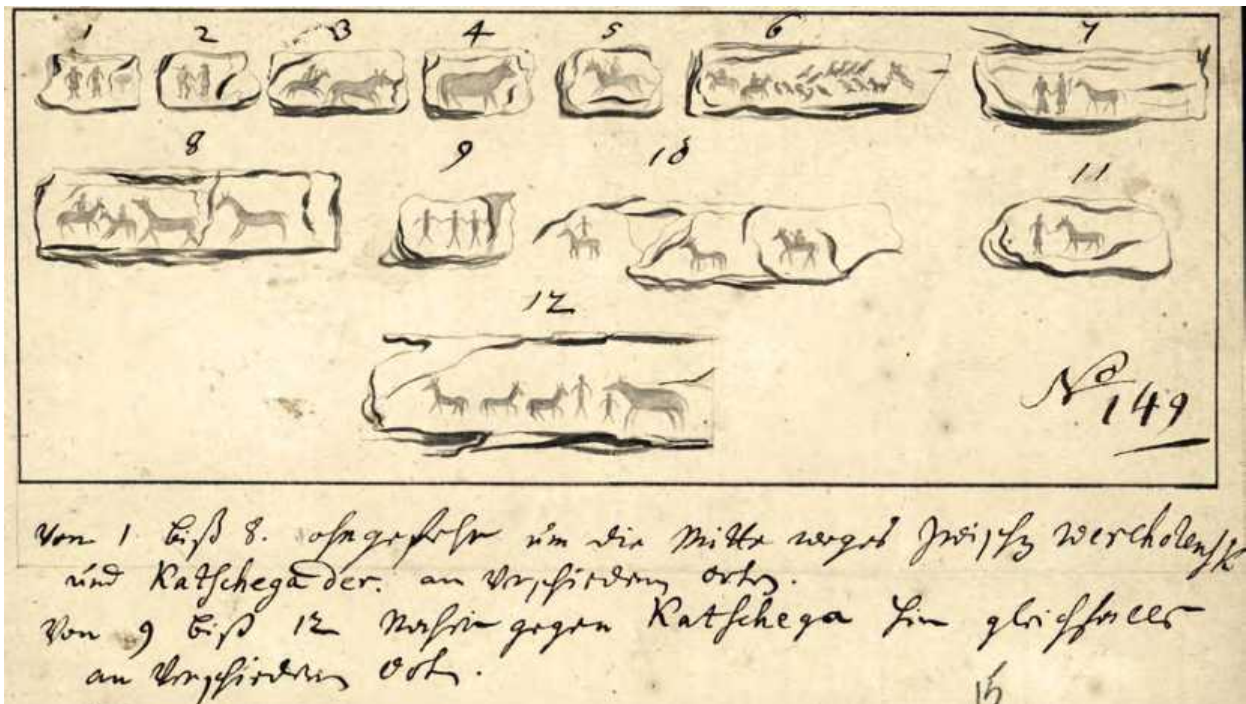 1 2 3 4 5 6 7
8 9 10 11
12
No 149
Von 1 biß 8. ohngefehr um die Mitte weges zwischen Wercholensk
und Katschega der. an verschiedenen orten.
Von 9 biß 12 gegen Katschega hin gleichfalls
an verschiedenen orten.